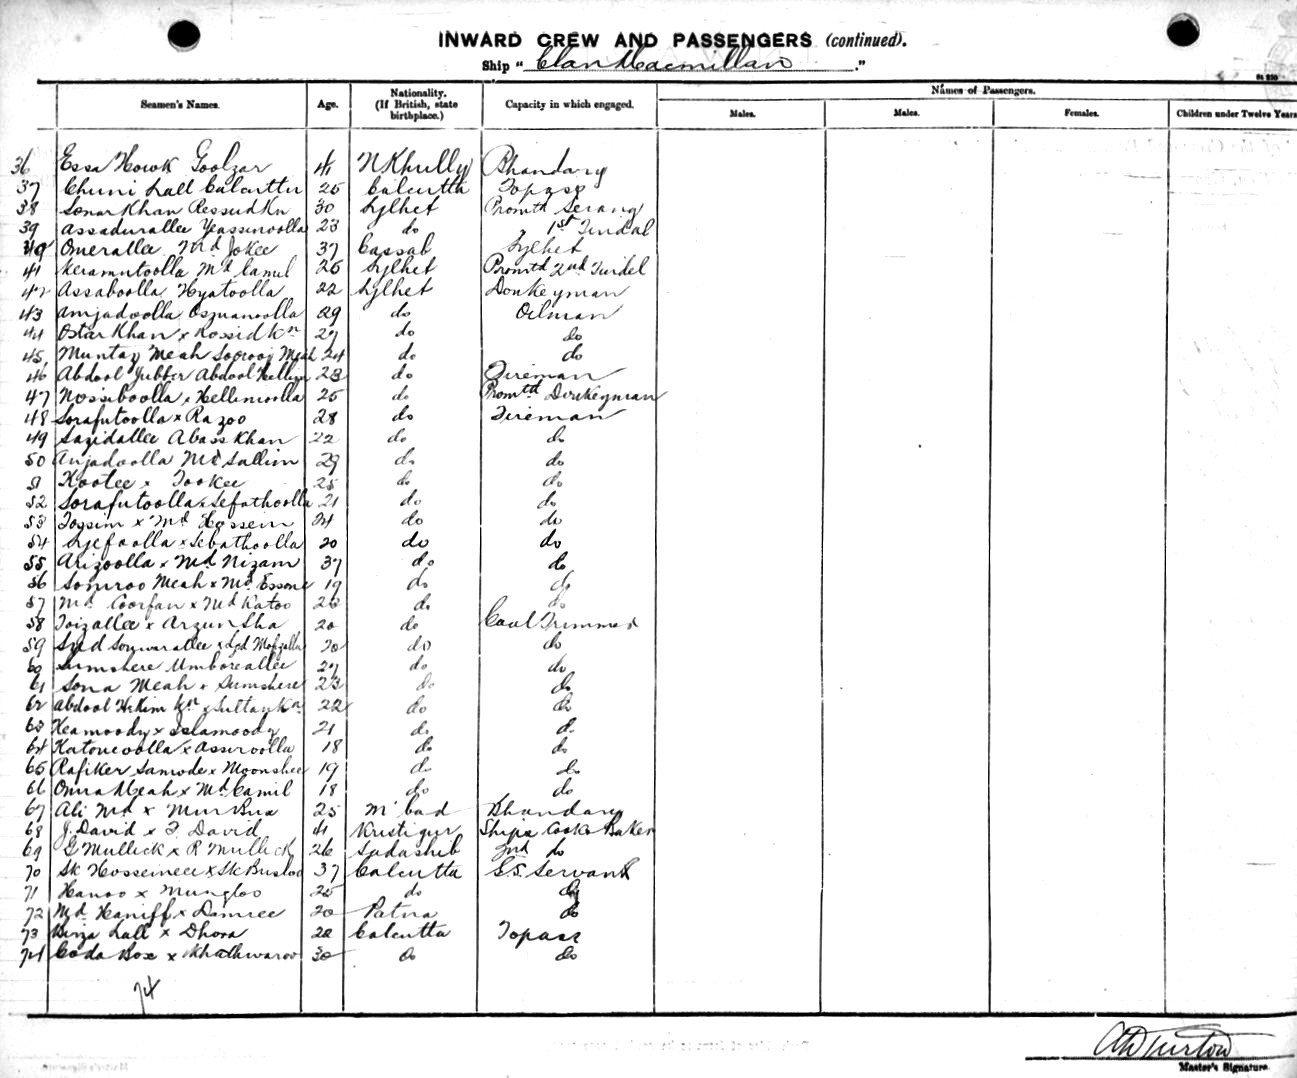 INWARD CREW AND PASSENGERS (continued).
Ship "Clan Macmillan."
Seamen's Names. Age. Nationality. (If British, state birthplace.) Capacity in which engaged. Names of Passengers.
Males. Males. Females. Children under Twelve Years
36 Essa Howk Goolzar 41 N Khully Bhandary
37 Chuni Lall Calcutta 25 Calcutta Topass
38 Sonar Khan Ressud Kn 30 Sylhet Promtd Serang
39 Assadurallee Yeassinoolla 23 do 1st Tindal
40 Omerallee Md Jokee 37 Cassab Sylhet
41 Keramutoolla Md Camil 26 Sylhet Promtd 2nd Tindel
42 Assaboolla Hyatoolla 22 Sylhet Donkeyman
43 Amjadoolla Osmanoolla 29 do Oilman
44 Ostar Khan x Rossid Kn 27 do do
45 Muntaz Meah Soorooj Meah 24 do do
46 Abdool Jubber Abdool 23 do Fireman
47 Nossiboolla x Kellimoolla 25 do Promtd Donkeyman
48 Sorafutoolla x Razoo 28 do Fireman
49 Sazidallee Abass Khan 22 do do
50 Anjadoolla Md Sallim 29 do do
51 Kootee x Tookee 25 do do
52 Sorafutoolla x Sefathoolla 21 do do
53 Tossim x Md Hossein 24 do do
54 Syefoolla x Sebathoolla 20 do do
55 Arizoolla x Md Nizam 37 do do
56 Somroo Meah x Md 19 do do
57 Md Coorfan x Md Katoo 26 do do
58 Toizallee x Arzun Sha 20 do Coal Trimmer
59 Syd Sonwarallee x Syd 20 do do
60 Sumshere Umboreallee 27 do do
61 Sona Meah x Sumshere 23 do do
62 Abdool Hekim Kn x Sultan Kn 22 do do
63 Keamoody x Islamoody 21 do do
64 Katoneoolla x Assiroolla 18 do do
65 Rafiker x Moonshee 19 do do
66 Onra Meah x Md Camil 18 do do
67 Ali Md x Mur Bux 25 M'bad Bhandary
68 J. David x F. David 41 Kristipur Ships Cook & Baker
69 G Mullick x R Mullick 26 Sadashib 2nd do
70 Sk Hosseinee x Sk 37 Calcutta G.S. Servant
71 Hanoo x Mungloo 25 do do
72 Md Haniff x Damree 20 Patna do
73 Binza Lall x Dhora 22 Calcutta Topass
74 Coda Box x Khathwaroo 30 do do
74
Master's Signature.